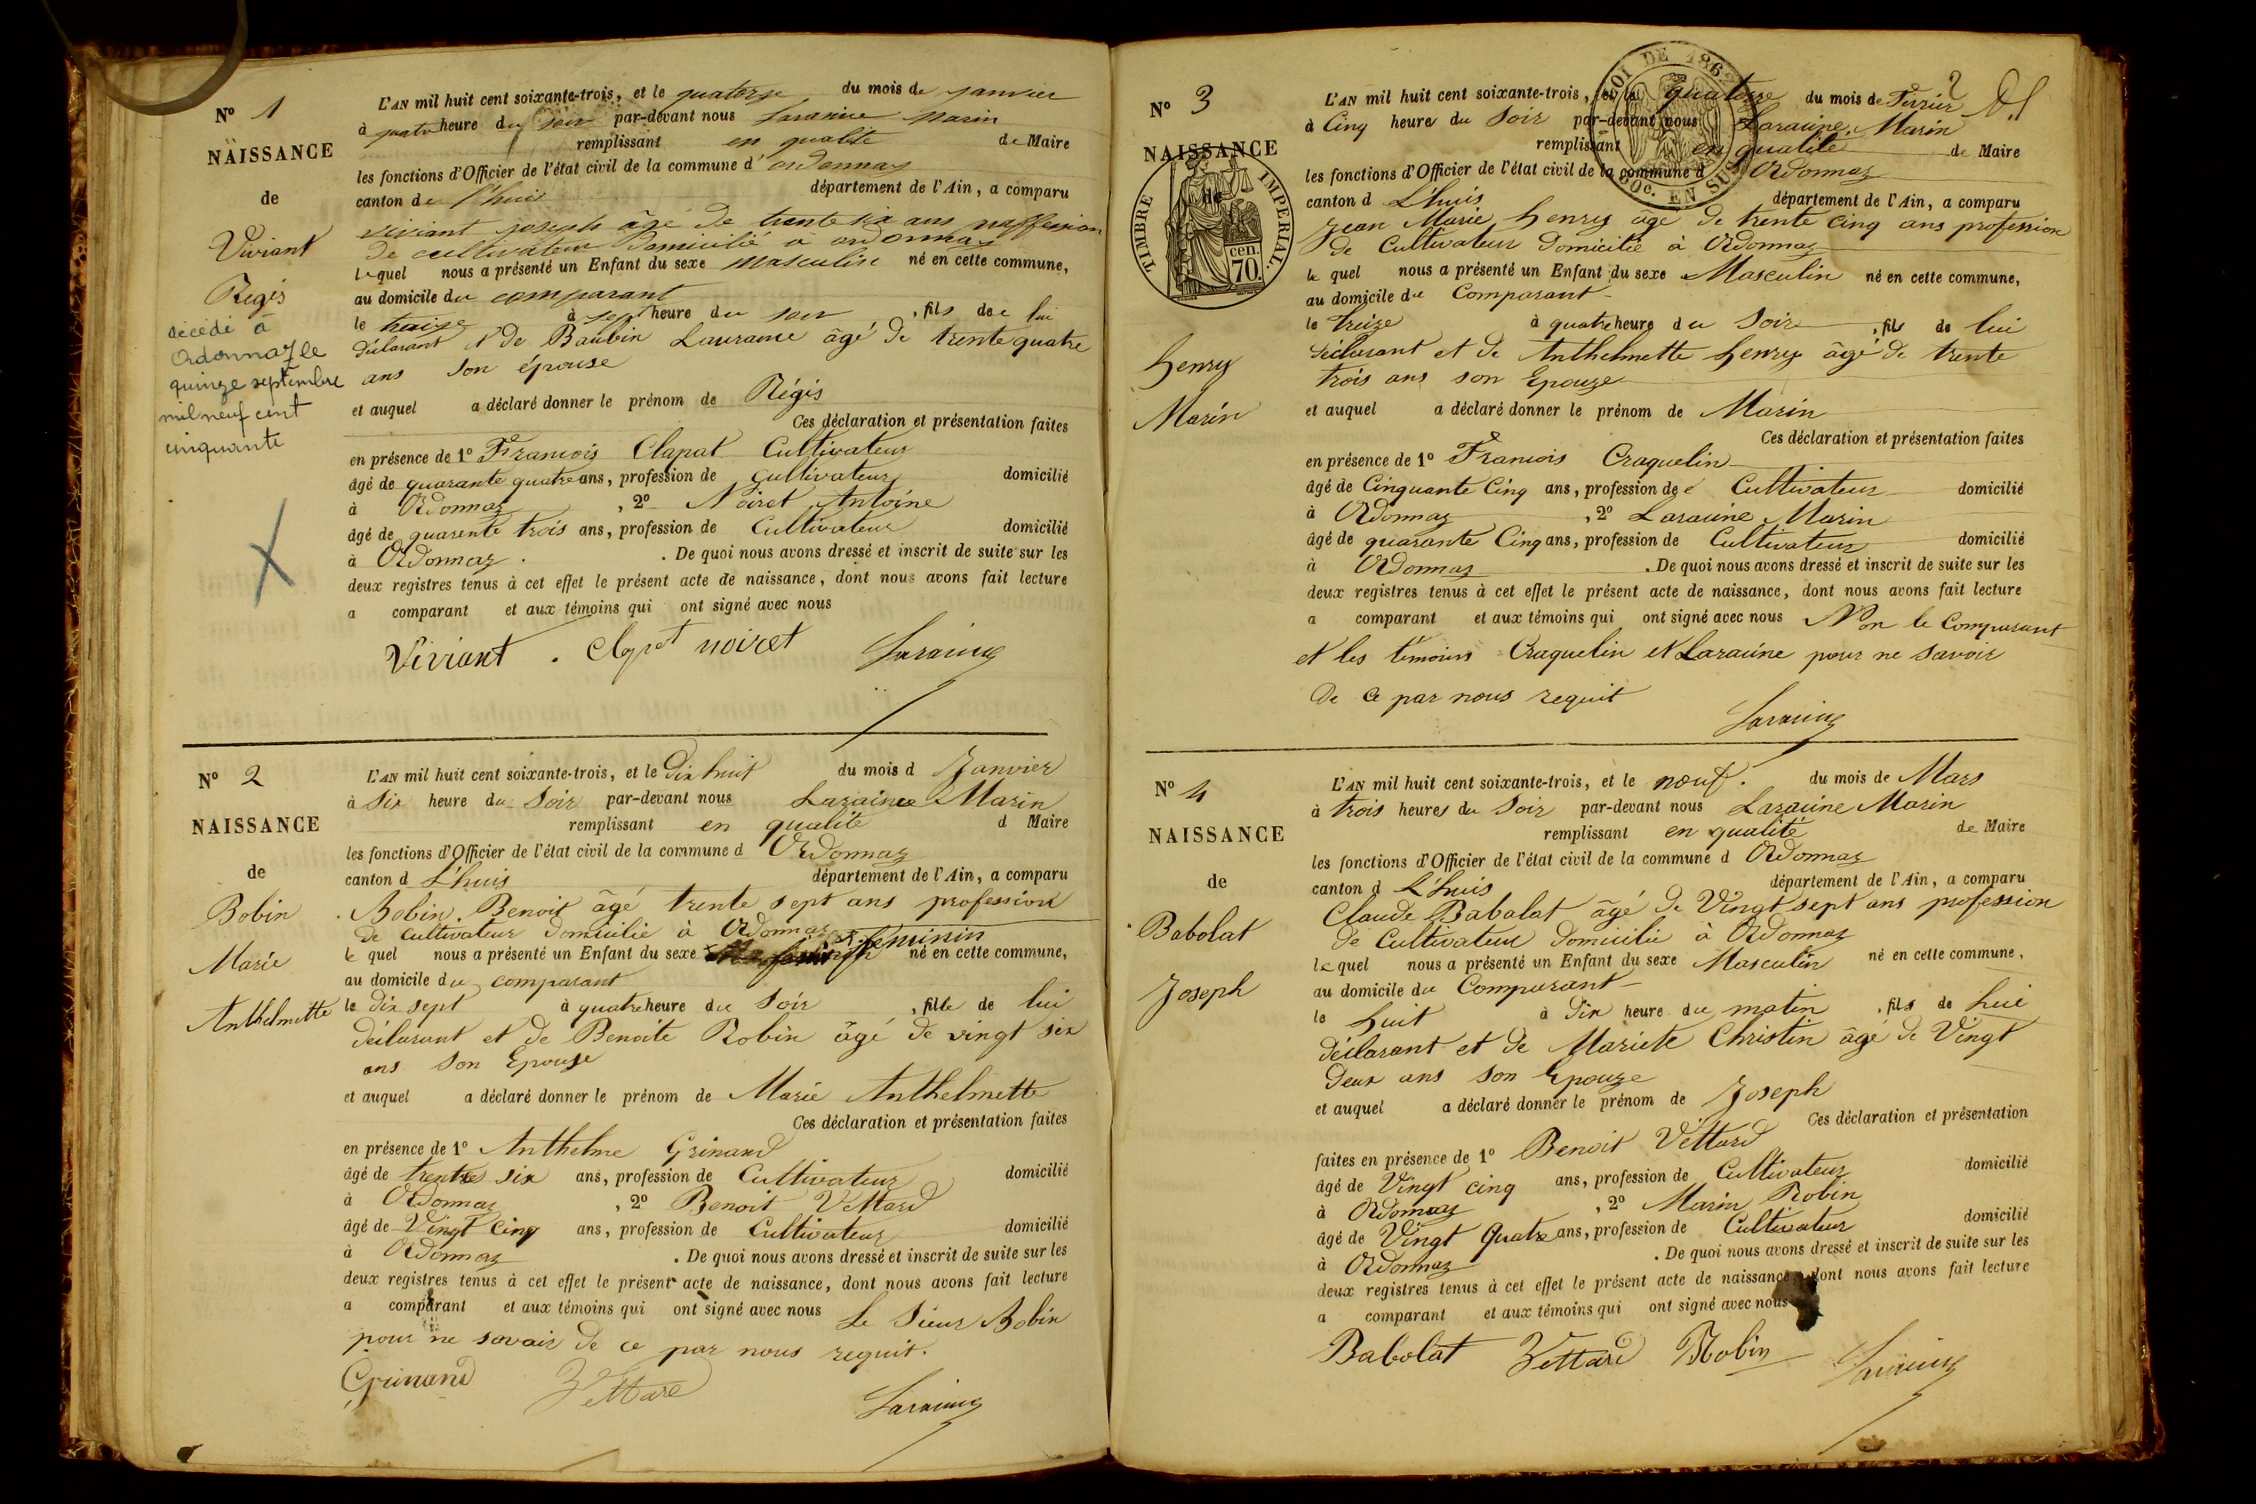 Nº 1
NAISSANCE
de
Viviant
Regis
décédé à
Ordonnaz le
quinze septembre
mil neuf cent
cinquante
L'AN mil huit cent soixante-trois, et le quatorze du mois de janvier
à quatre heure du soir par-devant nous Laraine Marin
remplissant en qualité de Maire
les fonctions d'Officier de l'état civil de la commune d'ordonnaz
canton de l'huis département de l'Ain, a comparu
viviant joseph âgé de trente six ans proffession
de cultivateur domicilié a ordonnaz
lequel nous a présenté un Enfant du sexe masculin né en cette commune,
au domicile du comparant
le traize à sept heure du soir, fils de lui
déclarant et de Baubin Lauraine âgé de trente quatre
ans son épouse
et auquel a déclaré donner le prénom de Régis
Ces déclaration et présentation faites
en présence de 1º Francois Clapat Cultivateur
âgé de quarante quatre ans, profession de cultivateur domicilié
à Ordonnaz, 2º Noiret Antoine
âgé de quarente trois ans, profession de Cultivateur domicilié
à Ordonnaz. De quoi nous avons dressé et inscrit de suite sur les
deux registres tenus à cet effet le présent acte de naissance, dont nous avons fait lecture
a comparant et aux témoins qui ont signé avec nous
Viviant. Clapat noiret Laraine
Nº 2
NAISSANCE
de
Bobin
Marie
Anthelmette
L'AN mil huit cent soixante-trois, et le Dix huit du mois d Janvier
à Six heure du Soir par-devant nous Laraine Marin
remplissant en qualité d Maire
les fonctions d'Officier de l'état civil de la commune d Ordonnaz
canton d L'huis département de l'Ain, a comparu
Bobin Benoit âgé trente sept ans profession
de cultivateur domicilié à Ordonnaz
le quel nous a présenté un Enfant du sexe feminin né en cette commune,
au domicile du comparant
le dix sept à quatre heure du Soir, fille de lui
déclarant et de Benoite Robin âgé de vingt six
ans son Epouse
et auquel a déclaré donner le prénom de Marie Anthelmette
Ces déclaration et présentation faites
en présence de 1º Anthelme Grinand
âgé de trente six ans, profession de Cultivateur domicilié
à Ordonnaz, 2º Benoit Vettard
âgé de Vingt cinq ans, profession de Cultivateur domicilié
à Ordonnaz. De quoi nous avons dressé et inscrit de suite sur les
deux registres tenus à cet effet le présent acte de naissance, dont nous avons fait lecture
a comparant et aux témoins qui ont signé avec nous Le Sieur Bobin
pour ne savoir de ce par nous requit.
Grinand Vettard Laraine
Nº 3
NAISSANCE
de
TIMBRE IMPERIAL.
cen.
70.
Henry
Marin
LOI DE 1862
10c. EN SUS
L'AN mil huit cent soixante-trois, et le quatorze du mois de Fevrier
à Cinq heure du Soir par-devant nous Laraine Marin
remplissant en qualité de Maire
les fonctions d'Officier de l'état civil de la commune d Ordonnaz
canton d L'huis département de l'Ain, a comparu
Jean Marie henry âgé de trente cinq ans profession
de Cultivateur domicilié à Ordonnaz
le quel nous a présenté un Enfant du sexe Masculin né en cette commune,
au domicile du Comparant
le treize à quatre heure du Soir, fils de lui
déclarant et de Anthelmette henry âgé de trente
trois ans son Epouze
et auquel a déclaré donner le prénom de Marin
Ces déclaration et présentation faites
en présence de 1º Francois Craquelin
âgé de Cinquante Cinq ans, profession de Cultivateur domicilié
à Ordonnaz, 2º Laraine Marin
âgé de quarante Cinq ans, profession de Cultivateur domicilié
à Ordonnaz. De quoi nous avons dressé et inscrit de suite sur les
deux registres tenus à cet effet le présent acte de naissance, dont nous avons fait lecture
a comparant et aux témoins qui ont signé avec nous Non le Comparant
et les témoins Craquelin et Laraine pour ne savoir
de ce par nous requit
Laraine
Nº 4
NAISSANCE
de
Babolat
Joseph
L'AN mil huit cent soixante-trois, et le neuf. du mois de Mars
à trois heures du Soir par-devant nous Laraine Marin
remplissant en qualité de Maire
les fonctions d'Officier de l'état civil de la commune d Ordonnaz
canton d L'huis département de l'Ain, a comparu
Claude Babalat âgé de Vingt sept ans profession
de Cultivateur domicilié à Ordonnaz
le quel nous a présenté un Enfant du sexe Masculin né en cette commune,
au domicile du Comparant
le huit à Dix heure du matin, fils de Lui
déclarant et de Mariete Christin âgé de Vingt
Deux ans son Epouze
et auquel a déclaré donner le prénom de Joseph
Ces déclaration et présentation
faites en présence de 1º Benoit Vettard
âgé de Vingt cinq ans, profession de Cultivateur domicilié
à Ordonnaz, 2º Marin Robin
âgé de Vingt Quatre ans, profession de Cultivateur domicilié
à Ordonnaz. De quoi nous avons dressé et inscrit de suite sur les
deux registres tenus à cet effet le présent acte de naissance, dont nous avons fait lecture
a comparant et aux témoins qui ont signé avec nous
Babolat Vettard Robin Laraine